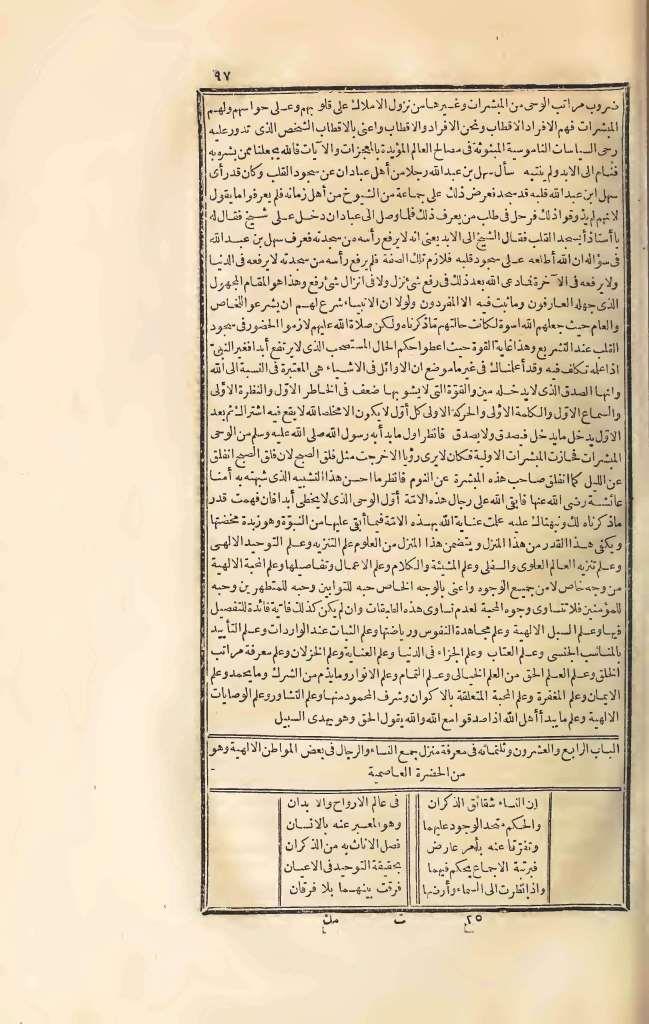 ٩٧
ضروب مراتب الوحى من المبشرات وغيرها من نزول الاملاك على قلوبهم وعلى حواسهم ولهم
المبشرات فهم الافراد الاقطاب ونحن الافراد والاقطاب واعنى بالاقطاب الشخص الذى تدور عليه
رحى السياسات الناموسية المبثوثة فى مصالح العالم المؤيدة بالمعجزات والآيات فالله يجعلنا ممن بشره به
فنام الى الابد ولم ينتبه سأل سهل بن عبد الله رجلا من أهل عبادان عن سجود القلب وكان قد رأى
سهل ابن عبد الله قلبه قد سجد فعرض ذلك على جماعة من الشيوخ من أهل زمانه فلم يعرفوا ما يقول
لانهم لم يذوقوا ذلك فرحل فى طلب من يعرف ذلك فلما وصل الى عبادان دخل على شيخ فقال له
يا أستاذ أيسجد القلب فقال الشيخ الى الابد يعنى انه لا يرفع رأسه من سجدته فعرف سهل بن عبد الله
فى سؤاله ان الله أطلعه على سجود قلبه فلازم تلك الصفة فلم يرفع رأسه من سجدته لا يرفعه فى الدنيا
ولا يرفعه فى الآخرة فما دعى الله بعد ذلك فى رفع شئ نزل ولا فى انزال شئ رفع وهذا هو المقام المجهول
الذى جهله العارفون وما ثبت فيه الا المفردون ولولا ان الانبياء شرع لهم ان يشرعوا للخاص
والعام حيث جعلهم الله اسوة لكانت حالتهم ما ذكرناه ولكن صلاة الله عليهم لازموا الحضور فى سجود
القلب عند التشريع وهذا غاية القوة حيث اعطوا حكم الحال المستصحب الذى لا يرتفع أبدا فغير النبى
اذا عمله تكلف فيه وقد أعلمناك فى غير ما موضع ان الاوائل فى الاشياء هى المعتبرة فى النسبة الى الله
وانها الصدق الذى لا يدخله مين والقوة التى لا يشوبها ضعف فى الخاطر الاول والنظرة الاولى
والسماع الاول والكلمة الاولى والحركة الاولى كل أول لا يكون الا مخلصا لله لا يقع فيه اشتراك ثم بعد
الاول يدخل ما يدخل فيصدق ولا يصدق فانظر اول ما بدأ به رسول الله صلى الله عليه وسلم من الوحى
المبشرات فحازت المبشرات الاولية فكان لا يرى رؤيا الا خرجت مثل فلق الصبح لان فلق الصبح انفلق
عن الليل كما انفلق صاحب هذه المبشرة عن النوم فانظر ما احسن هذا التشبيه الذى شبهته به أمنا
عائشة رضى الله عنها فابقى الله على رجال هذه الامة أول الوحى الذى لا يخطئ أبدا فان فهمت قدر
ما ذكرناه لك ونبهناك عليه علمت عناية الله بهذه الامة فيما أبقى عليها من النبوة وهو زبدة مخضتها
ويكفى هذا القدر من هذا المنزل ويتضمن هذا المنزل من العلوم علم التنزيه وعلم التوحيد الالهى
وعلم تنزيه العالم العلوى والسفلى وعلم المشيئة والكلام وعلم الاعمال وتفاصيلها وعلم المحبة الالهية
من وجه خاص لا من جميع الوجوه واعنى بالوجه الخاص حبه للتوابين وحبه للمتطهرين وحبه
للمؤمنين فلا تتساوى وجوه المحبة لعدم تساوى هذه الطبقات وان لم يكن كذلك فاية فائدة للتفصيل
فيها وعلم السبل الالهية وعلم مجاهدة النفوس ورياضتها وعلم الثبات عند الواردات وعلم التأييد
بالمناسب الجنسى وعلم العتاب وعلم الجزاء فى الدنيا وعلم العناية وعلم الخزلان وعلم معرفة مراتب
الخلق وعلم العلم الحق من العلم الخيالى وعلم التمام وعلم الانوار وما يذم من الشرك وما يحمد وعلم
الايمان وعلم المغفرة وعلم المحبة المتعلقة بالاكوان وشرف المحمود منها وعلم التشاور وعلم الوصايات
الالهية وعلم ما يبدأ أهل الله اذا صدقوا مع الله والله يقول الحق وهو يهدى السبيل
الباب الرابع والعشرون وثلثمائه فى معرفة منزل جمع النساء والرجال فى بعض المواطن الالهية وهو
من الحضرة العاصمية
ان النساء شقائق الذكران فى عالم الارواح والابدان
والحكم متحد الوجود عليهما وهو المعبر عنه بالانسان
وتفرقا عنه بأمر عارض فصل الاناث به من الذكران
فبرتبة الاجماع يحكم فيهما بحقيقة التوحيد فى الاعيان
واذا نظرت الى السماء وأرضها فرقت بينهما بلا فرقان
٢٥ ت مك